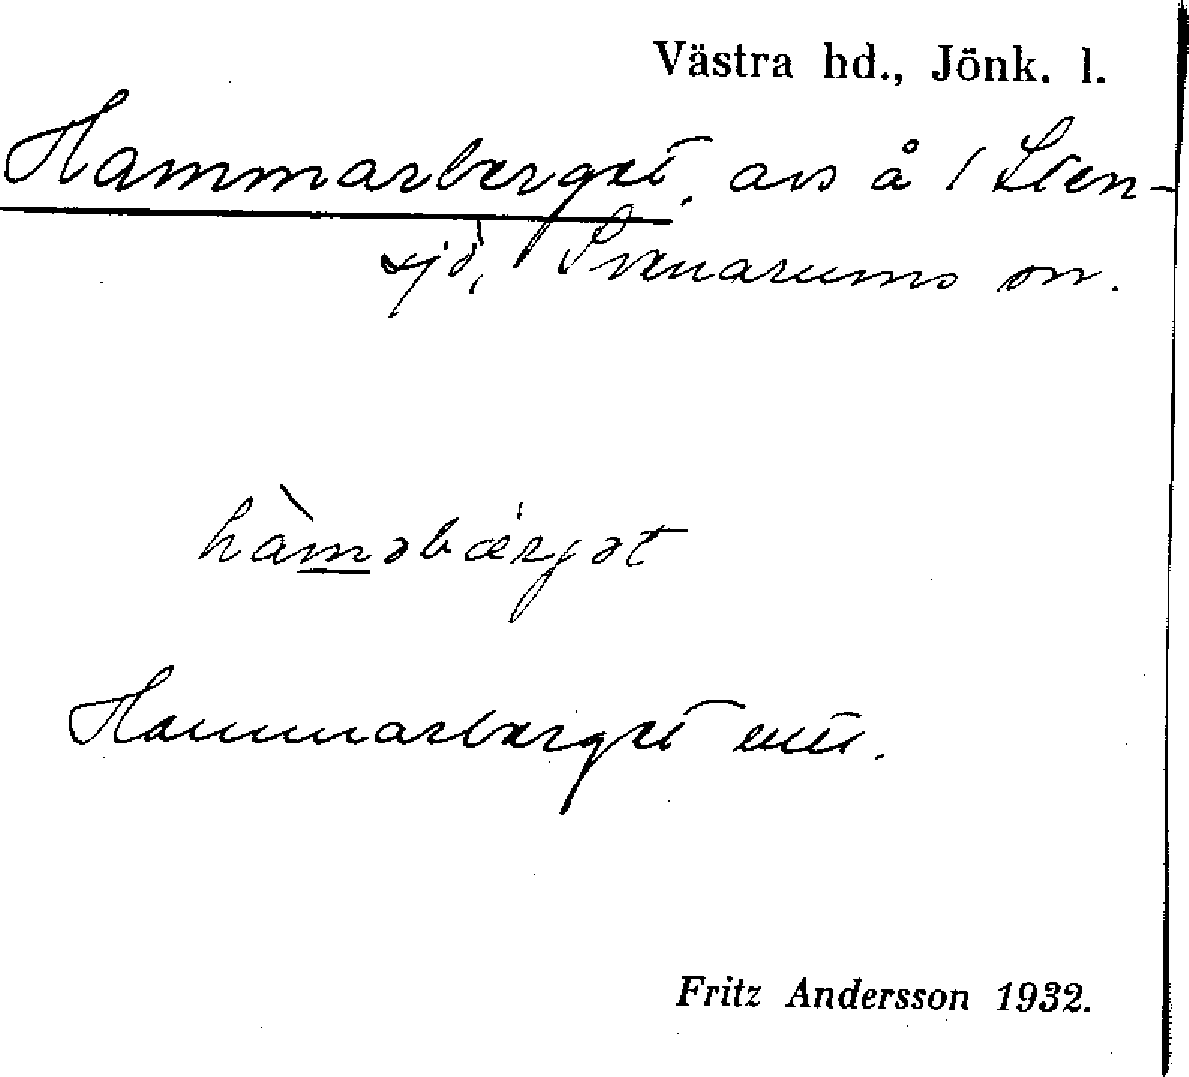 Västra hd., Jönk. l.
Hammarberget, avs å 1 Sten-
sjö, Svenarums sn.
hàmǝbærjǝt
Hammarberget
Fritz Andersson 1932.